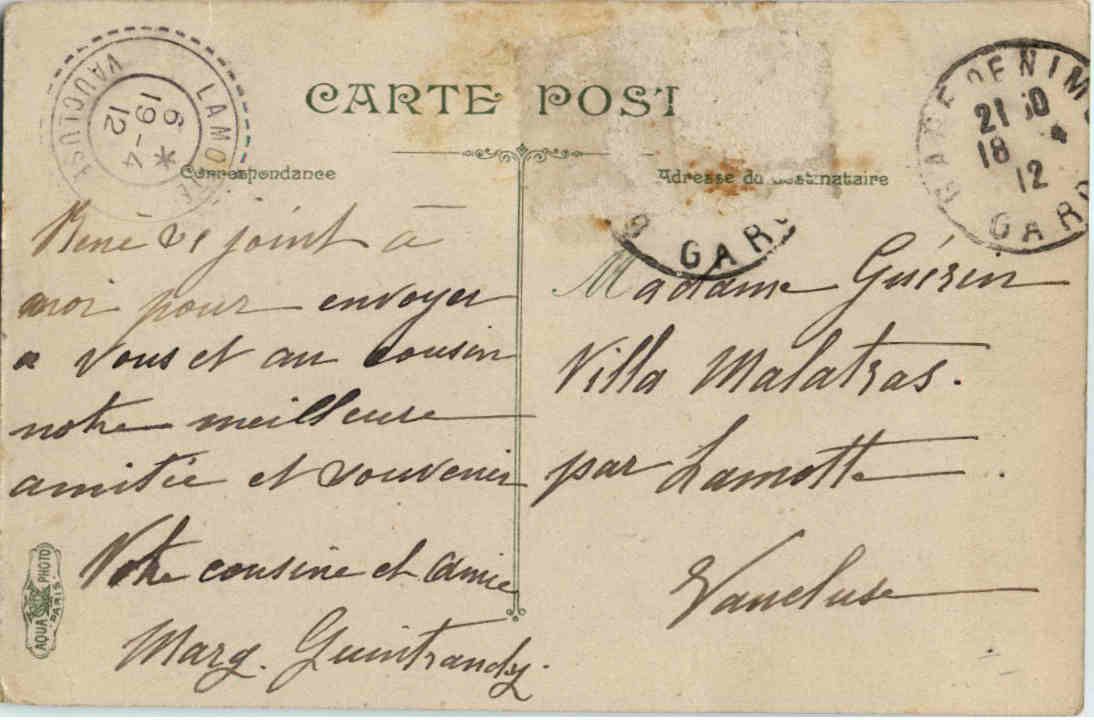 CARTE POST
Correspondance
Adresse du destinataire
LAMOTTE
VAUCLUSE
6 *
19-4
12
GARE DE NIMES
21 30
18 4
12
GARD
GARD
René se joint à
moi pour envoyer
a vous et au cousin
notre meilleure
amitié et souvenir
Votre cousine et amie
Marg. Guintrandy.
Madame Guérin
Villa Malatras.
par Lamotte.
Vaucluse
AQUA PHOTO
PARIS